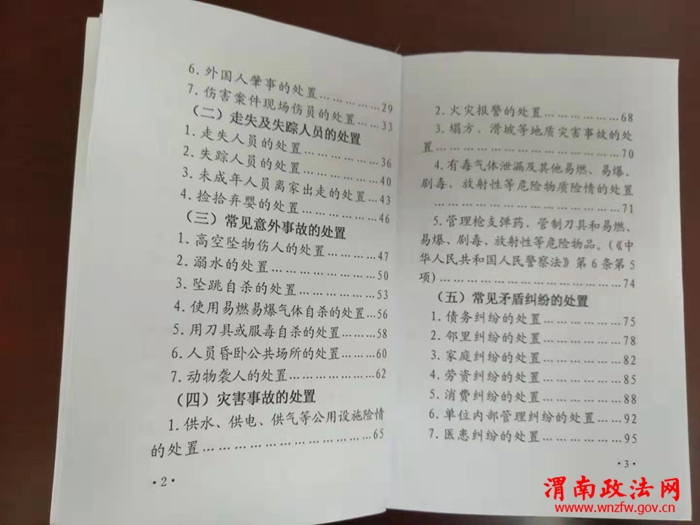 6.外国人肇事的处置………………29
7.伤害案件现场伤员的处置………33
（二）走失及失踪人员的处置
1.走失人员的处置…………………36
2.失踪人员的处置…………………40
3.未成年人员离家出走的处置……43
4.捡拾弃婴的处置…………………46
（三）常见意外事故的处置
1.高空坠物伤人的处置……………47
2.溺水的处置………………………50
3.坠跳自杀的处置…………………53
4.使用易燃易爆气体自杀的处置…56
5.用刀具或服毒自杀的处置………58
6.人员昏卧公共场所的处置………60
7.动物袭人的处置…………………62
（四）灾害事故的处置
1.供水、供电、供气等公用设施险情
的处置………………………………65
·2·
2.火灾报警的处置…………………68
3.塌方、滑坡等地质灾害事故的处
置……………………………………70
4.有毒气体泄漏及其他易燃、易爆、
剧毒、放射性等危险物质险情的处置
………………………………………71
5.管理枪支弹药、管制刀具和易燃、
易爆、剧毒、放射性等危险物品。(《中
华人民共和国人民警察法》第6条第5
项)…………………………………74
（五）常见矛盾纠纷的处置
1.债务纠纷的处置…………………75
2.邻里纠纷的处置…………………78
3.家庭纠纷的处置…………………82
4.劳资纠纷的处置…………………85
5.消费纠纷的处置…………………88
6.单位内部管理纠纷的处置………92
7.医患纠纷的处置…………………95
·3·
渭南政法网
www.wnzfw.gov.cn